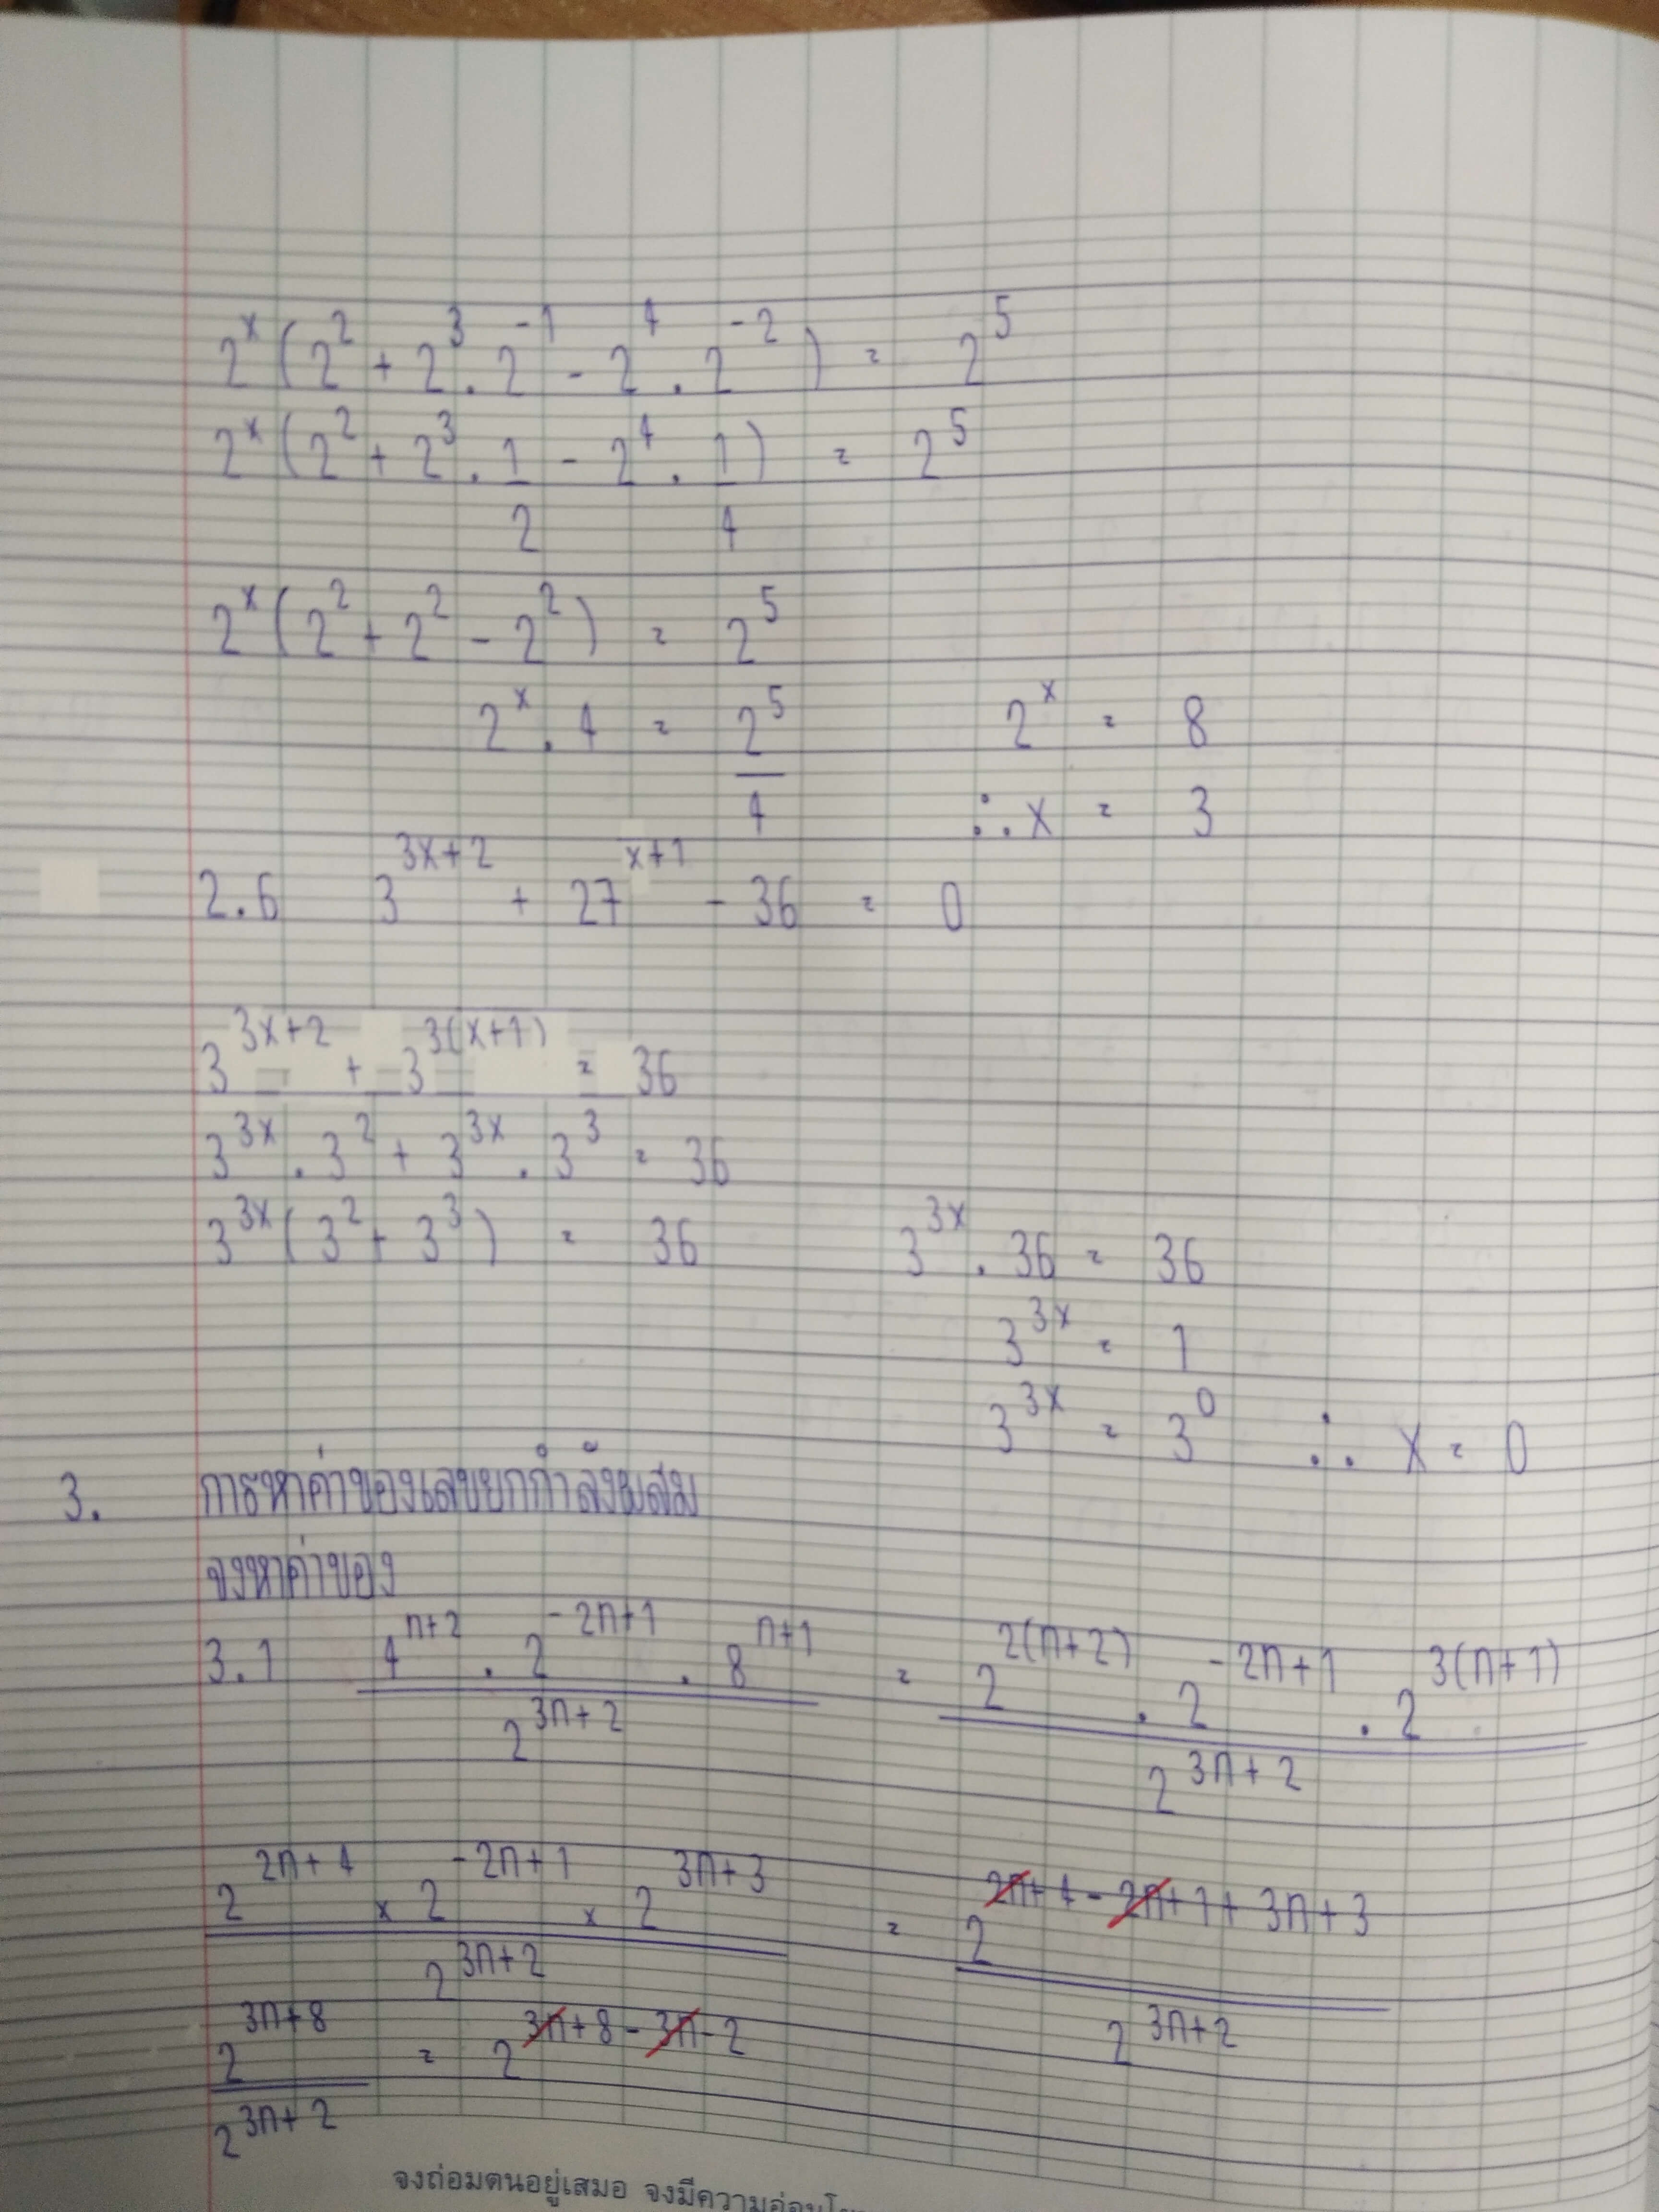 2^x (2^2 + 2^3 . 2^-1 - 2^4 . 2^-2) = 2^5
2^x (2^2 + 2^3 . 1/2 - 2^4 . 1/4) = 2^5
2^x (2^2 + 2^2 - 2^2) = 2^5
2^x . 4 = 2^5/4    2^x = 8
∴ x = 3
2.6 3^(3x+2) + 27^(x+1) - 36 = 0
3^(3x+2) + 3^(3(x+1)) = 36
3^(3x) . 3^2 + 3^(3x) . 3^3 = 36
3^(3x) (3^2 + 3^3) = 36    3^(3x) . 36 = 36
3^(3x) = 1
3^(3x) = 3^0 ∴ x = 0
3. การหาค่าของเลขยกกำลังผสม
จงหาค่าของ
3.1 (4^(n+2) . 2^(-2n+1) . 8^(n+1)) / 2^(3n+2) = (2^(2(n+2)) . 2^(-2n+1) . 2^(3(n+1))) / 2^(3n+2)
(2^(2n+4) x 2^(-2n+1) x 2^(3n+3)) / 2^(3n+2) = 2^(2n+4-2n+1+3n+3) / 2^(3n+2)
2^(3n+8) / 2^(3n+2) = 2^(3n+8-3n-2)
จงถ่อมตนอยู่เสมอ จงมีความ